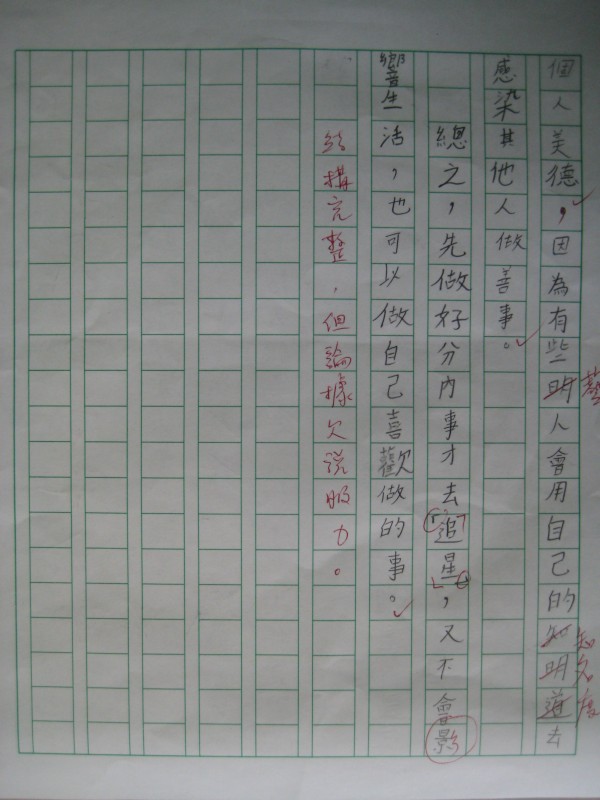 個人美德，因為有些明人會用自己的知明道去
藝
知名度
感染其他人做善事。
總之，先做好分內事才去追星，又不會影
響生活，也可以做自己喜歡做的事。
結構完整，但論據欠說服力。